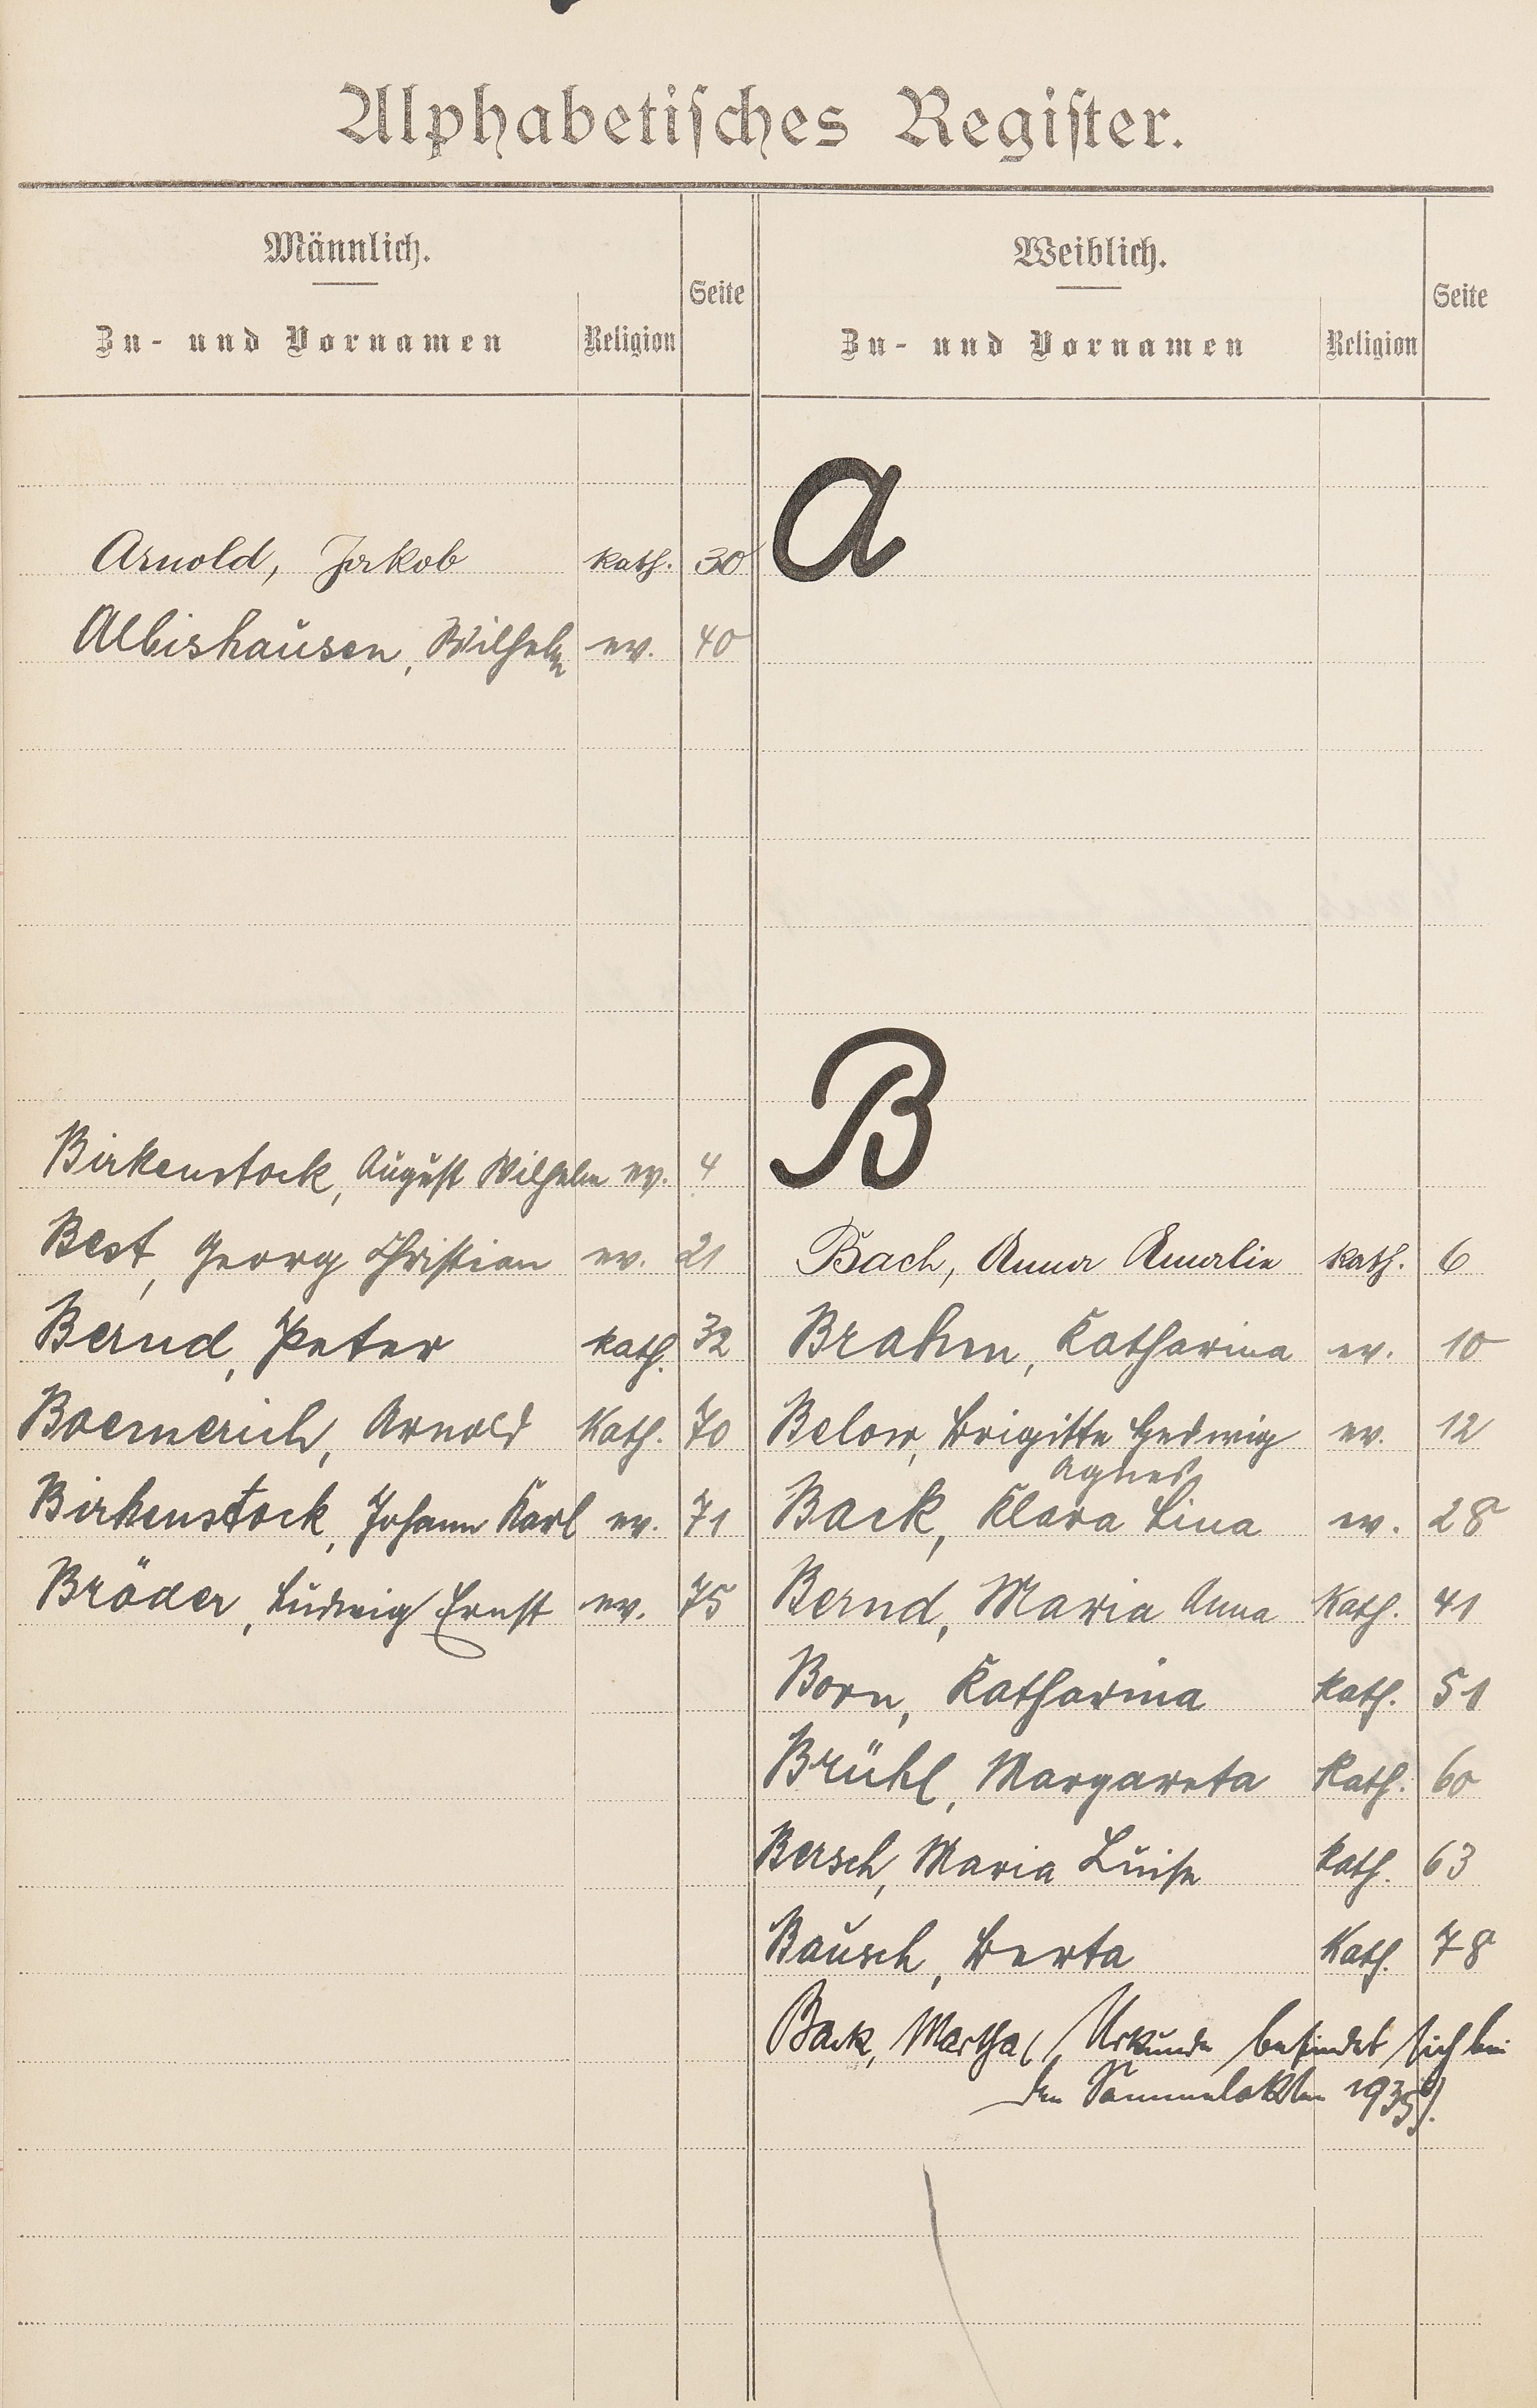 Alphabetisches Register.
Männlich.
Zu- und Vornamen
Religion
Seite
Weiblich.
Zu- und Vornamen
Religion
Seite
A
Arnold, Jakob kath. 30
Albishausen, Wilhelm ev. 40
B
Birkenstock, August Wilhelm ev. 4
Best, Georg Christian ev. 21
Bernd, Peter kath. 32
Boemerich, Arnold Kath. 70
Birkenstock, Johann Karl ev. 71
Bröder, Ludwig Ernst ev. 75
Bach, Anna Amalie kath. 6
Brahm, Katharina ev. 10
Below, Brigitte Hedwig ev. 12
Agnes
Back, Klara Lina ev. 28
Bernd, Maria Anna Kath. 41
Born, Katharina kath. 51
Brühl, Margareta Kath. 60
Bersch, Maria Luise kath. 63
Bausch, Berta Kath. 78
Back, Martha (Urkunde befindet sich bei
den Sammelakten 1935).